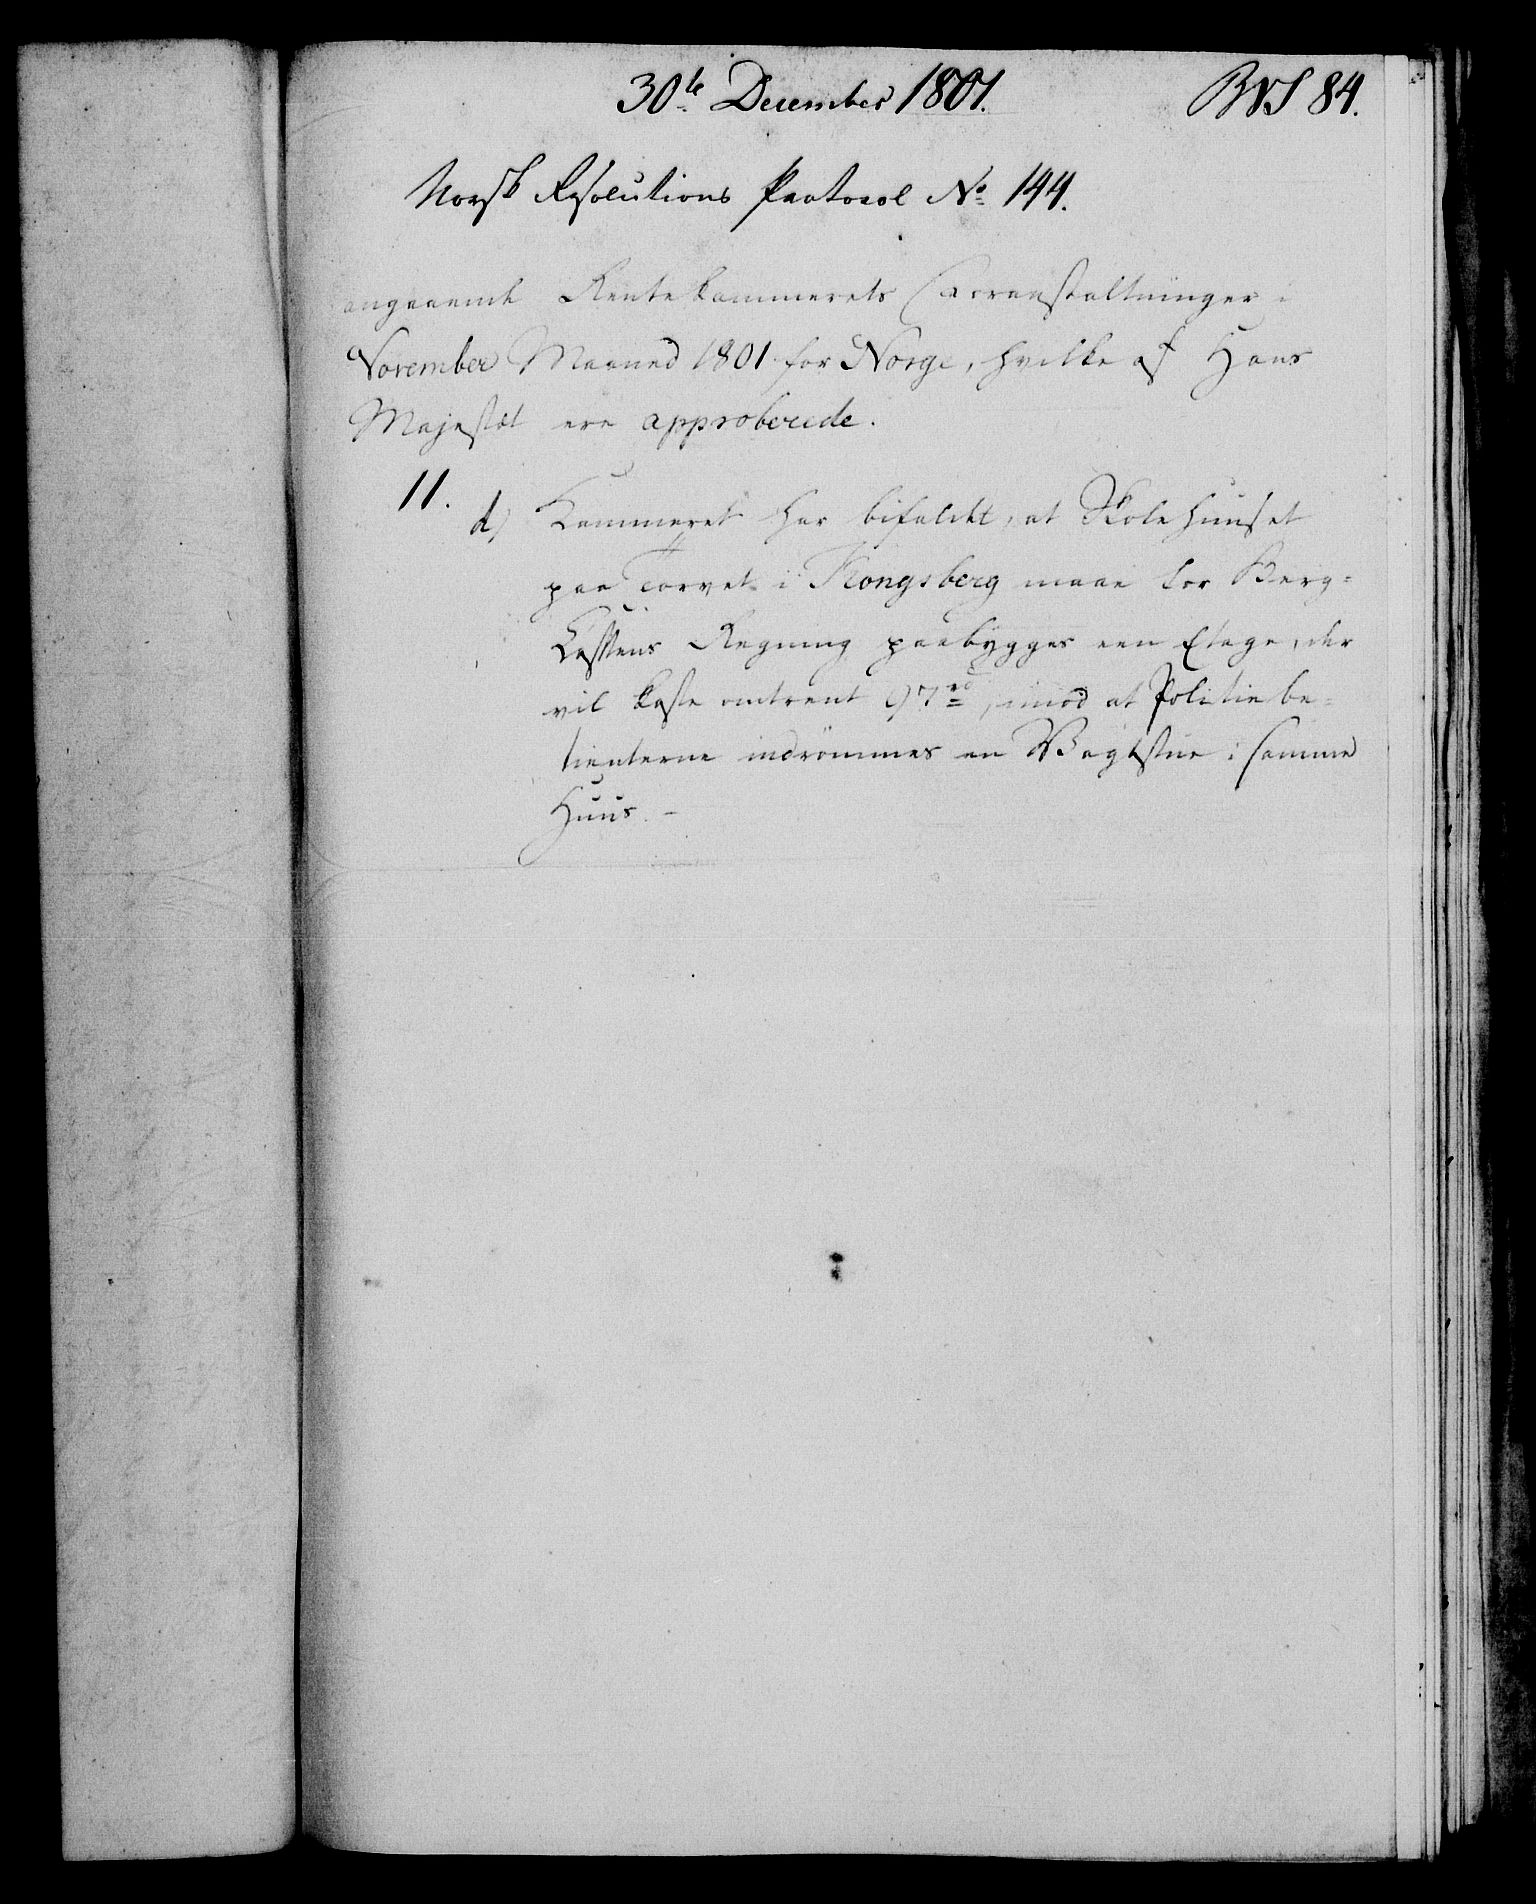 30te December 1801.
BVS 84.
Norsk Resolutions Protocol No 144.
angaaende Rentekammerets Foranstaltninger i
November Maaned 1801 for Norge, hvilke af Hans
Majestæt ere approberede.
11. d) Kammeret har bifaldet, at Skolehuuset
paa Torvet i Kongsberg maae for Berg-
Cassens Regning paabygges een Etage, der
vil koste omtrent 97 rd, imod at Politiebe-
tienterne indrömmes en Vagtstue i samme
Huus. -